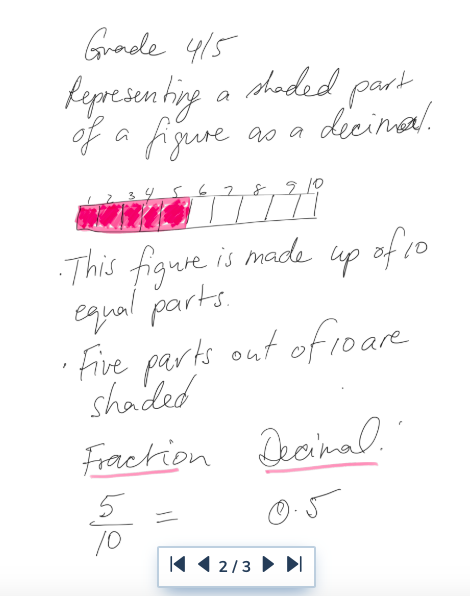 Grade 4/5
Representing a shaded part
of a figure as a decimal.
1 2 3 4 5 6 7 8 9 10
· This figure is made up of 10
equal parts.
· Five parts out of 10 are
shaded
Fraction Decimal.
5
10 = 0.5
2/3